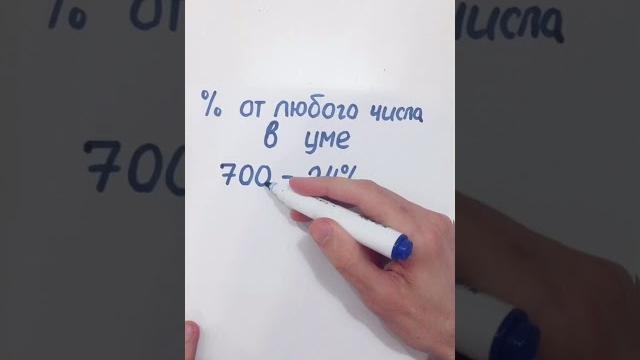 % от любого числа
в уме
700 - 24%